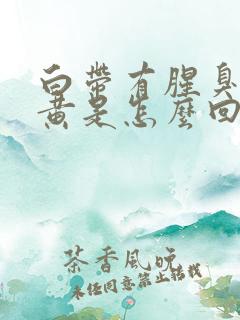 白带有腥臭
黄是怎麽回
茶香风晚
未经同意禁止转载